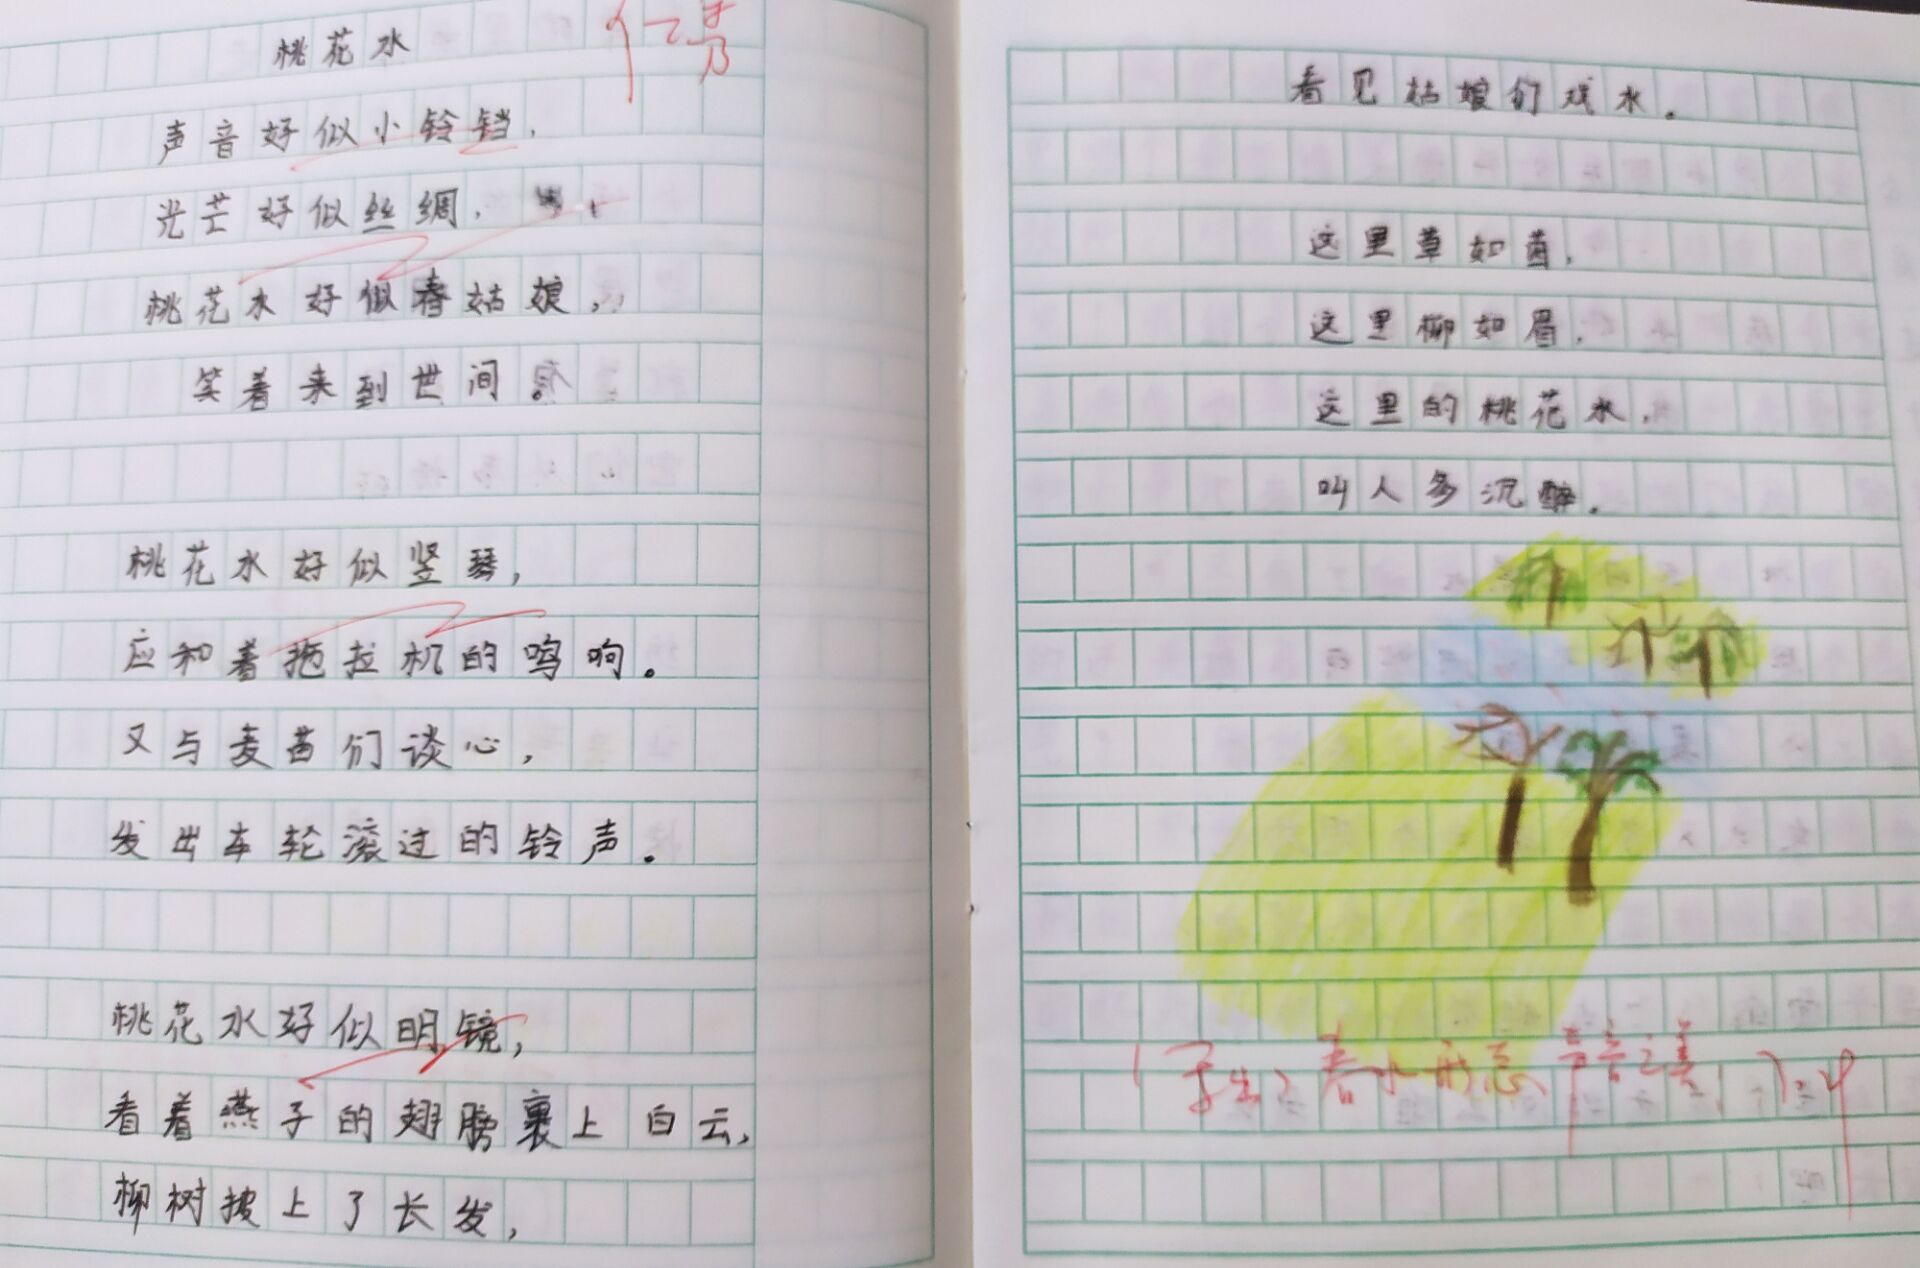 桃花水
声音好似小铃铛，
光芒好似丝绸，
桃花水好似春姑娘，
笑着来到世间。
桃花水好似竖琴，
应和着拖拉机的鸣响。
又与麦苗们谈心，
发出车轮滚过的铃声。
桃花水好似明镜，
看着燕子的翅膀裹上白云，
柳树披上了长发，
看见姑娘们戏水。
这里草如茵，
这里柳如眉，
这里的桃花水，
叫人多沉醉。
春水形态声音之美